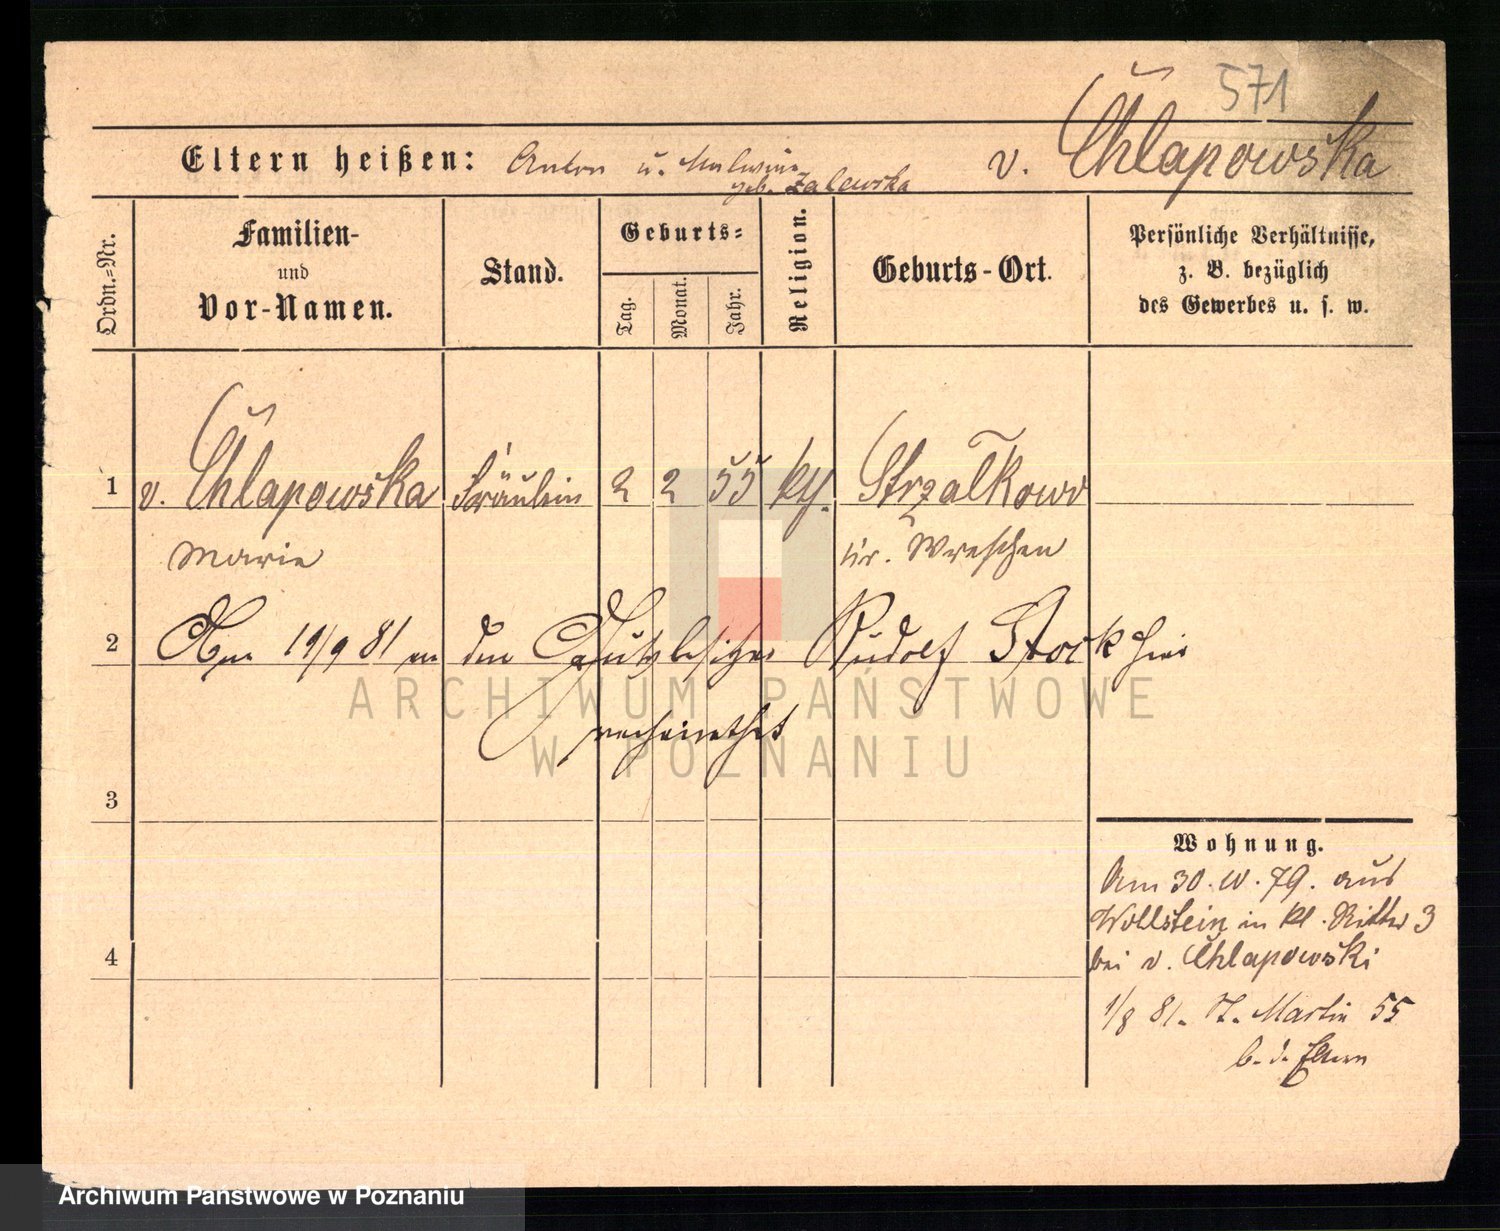 571
v. Chłapowska
Eltern heißen: Anton u. Malwina
geb. Zalewska
Ordn.-Nr.
Familien-
und
Vor-Namen.
Stand.
Geburts-
Tag.
Monat.
Jahr.
Religion.
Geburts-Ort.
Persönliche Verhältnisse,
z. B. bezüglich
des Gewerbes u. s. w.
1 v. Chłapowska Fräulein 2 2 55 kth. Strzałkowo
Marie Kr. Wreschen
2 Am 19/9 81 an den Gutsbesitzer Rudolf Stock hier
verheirathet
3
4
Wohnung.
Am 30. IV. 79. aus
Wollstein in kl. Ritter 3
bei v. Chłapowski
1/8 81. St. Martin 55
b. d. Eltern
ARCHIWUM PAŃSTWOWE
W POZNANIU
Archiwum Państwowe w Poznaniu